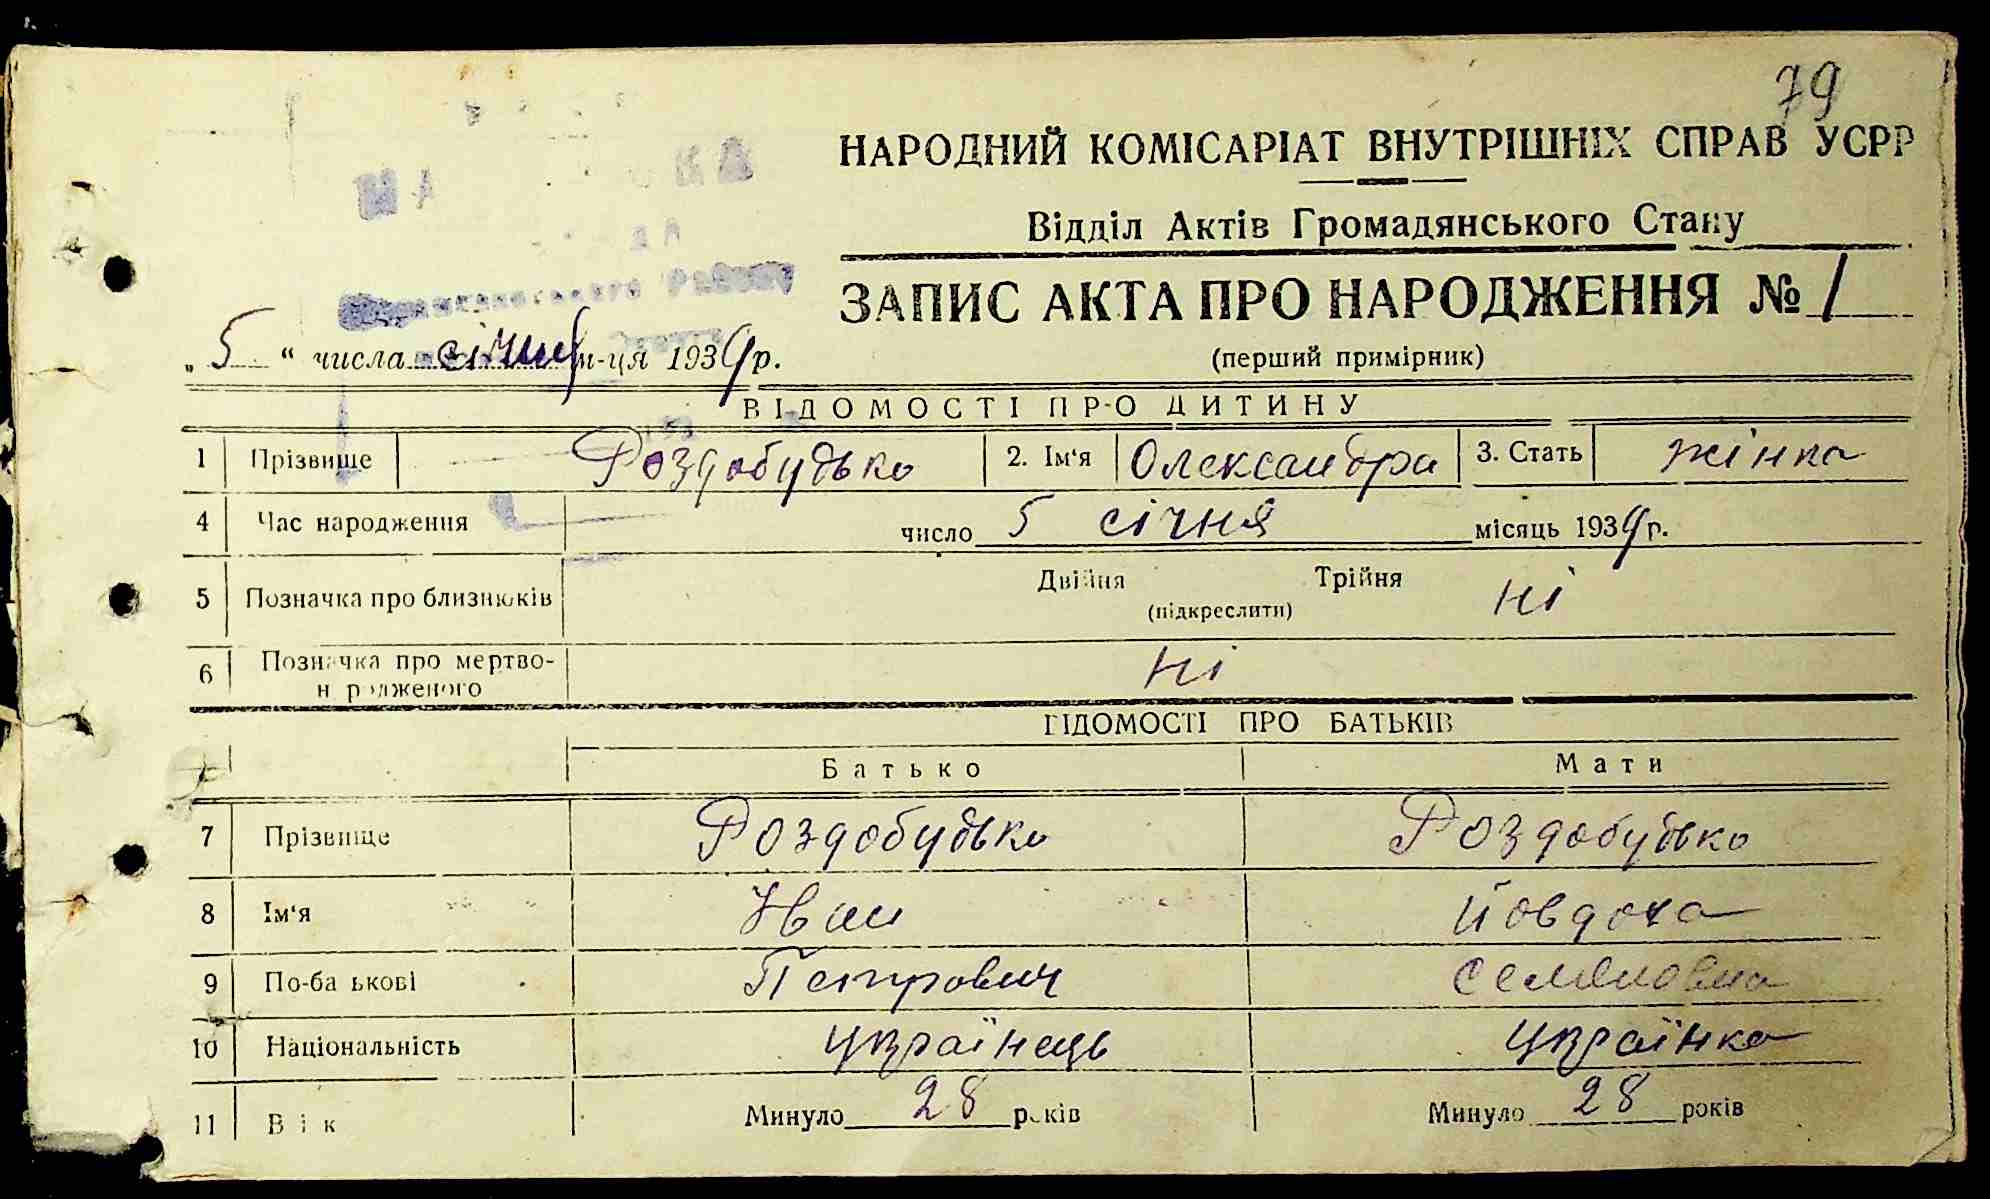 79
НАРОДНИЙ КОМІСАРІАТ ВНУТРІШНІХ СПРАВ УСРР
Відділ Актів Громадянського Стану
ЗАПИС АКТА ПРО НАРОДЖЕННЯ № 1
„ 5 “ числа січня м-ця 1934 р.
(перший примірник)
ВІДОМОСТІ ПРО ДИТИНУ
1 Прізвище Роздобудько 2. Ім‘я Олександра 3. Стать жінка
4 Час народження число 5 січня місяць 1934 р.
5 Позначка про близнюків Двійня Трійня ні
(підкреслити)
6 Позначка про мертво-
народженого ні
ВІДОМОСТІ ПРО БАТЬКІВ
Батько Мати
7 Прізвище Роздобудько Роздобудько
8 Ім‘я Іван Йовдоха
9 По-батькові Петрович Семеновна
10 Національність українець українка
11 Вік Минуло 28 років Минуло 28 років